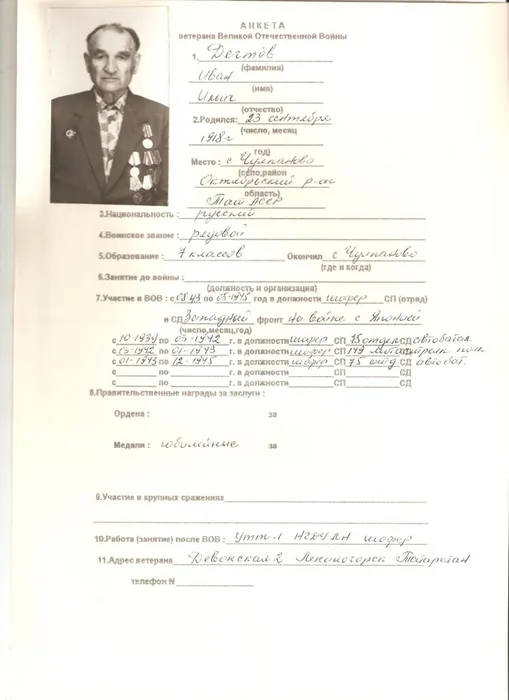 АНКЕТА
ветерана Великой Отечественной Войны
1. Дегтов
(фамилия)
Иван
(имя)
Ильич
(отчество)
2.Родился: 23 сентября
(число, месяц
1918 г
год)
Место: с. Чулпаново
(село,район
Октябрьский р-он
область)
Тат АССР
3.Национальность: русский
4.Воинское звание: рядовой
5.Образование: 7 классов Окончил с Чулпаново
(где и когда)
6.Занятие до войны:
(должность и организация)
7.Участие в ВОВ: с 08.43 по 05-1945 год в должности шофер СП (отряд)
и СД Западный фронт На войне с Японией
(число,месяц,год)
с 10-1939 по 03-1942 г. в должности шофер СП 75 отдел СД автобатал.
с 03-1942 по 01-1943 г. в должности шофер СП 149 полк
с 01-1943 по 12-1945 г. в должности шофер СП 75 отд. СД автобат.
с по г. в должности СП СД
с по г. в должности СП СД
8.Правительственные награды за заслуги:
Ордена: за
Медали: юбилейные за
9.Участие и крупных сражениях
10.Работа (занятие) после ВОВ: УТТ-1 НГДУ ЛН шофер
11.Адрес ветерана Лениногорск Татарстан
телефон N